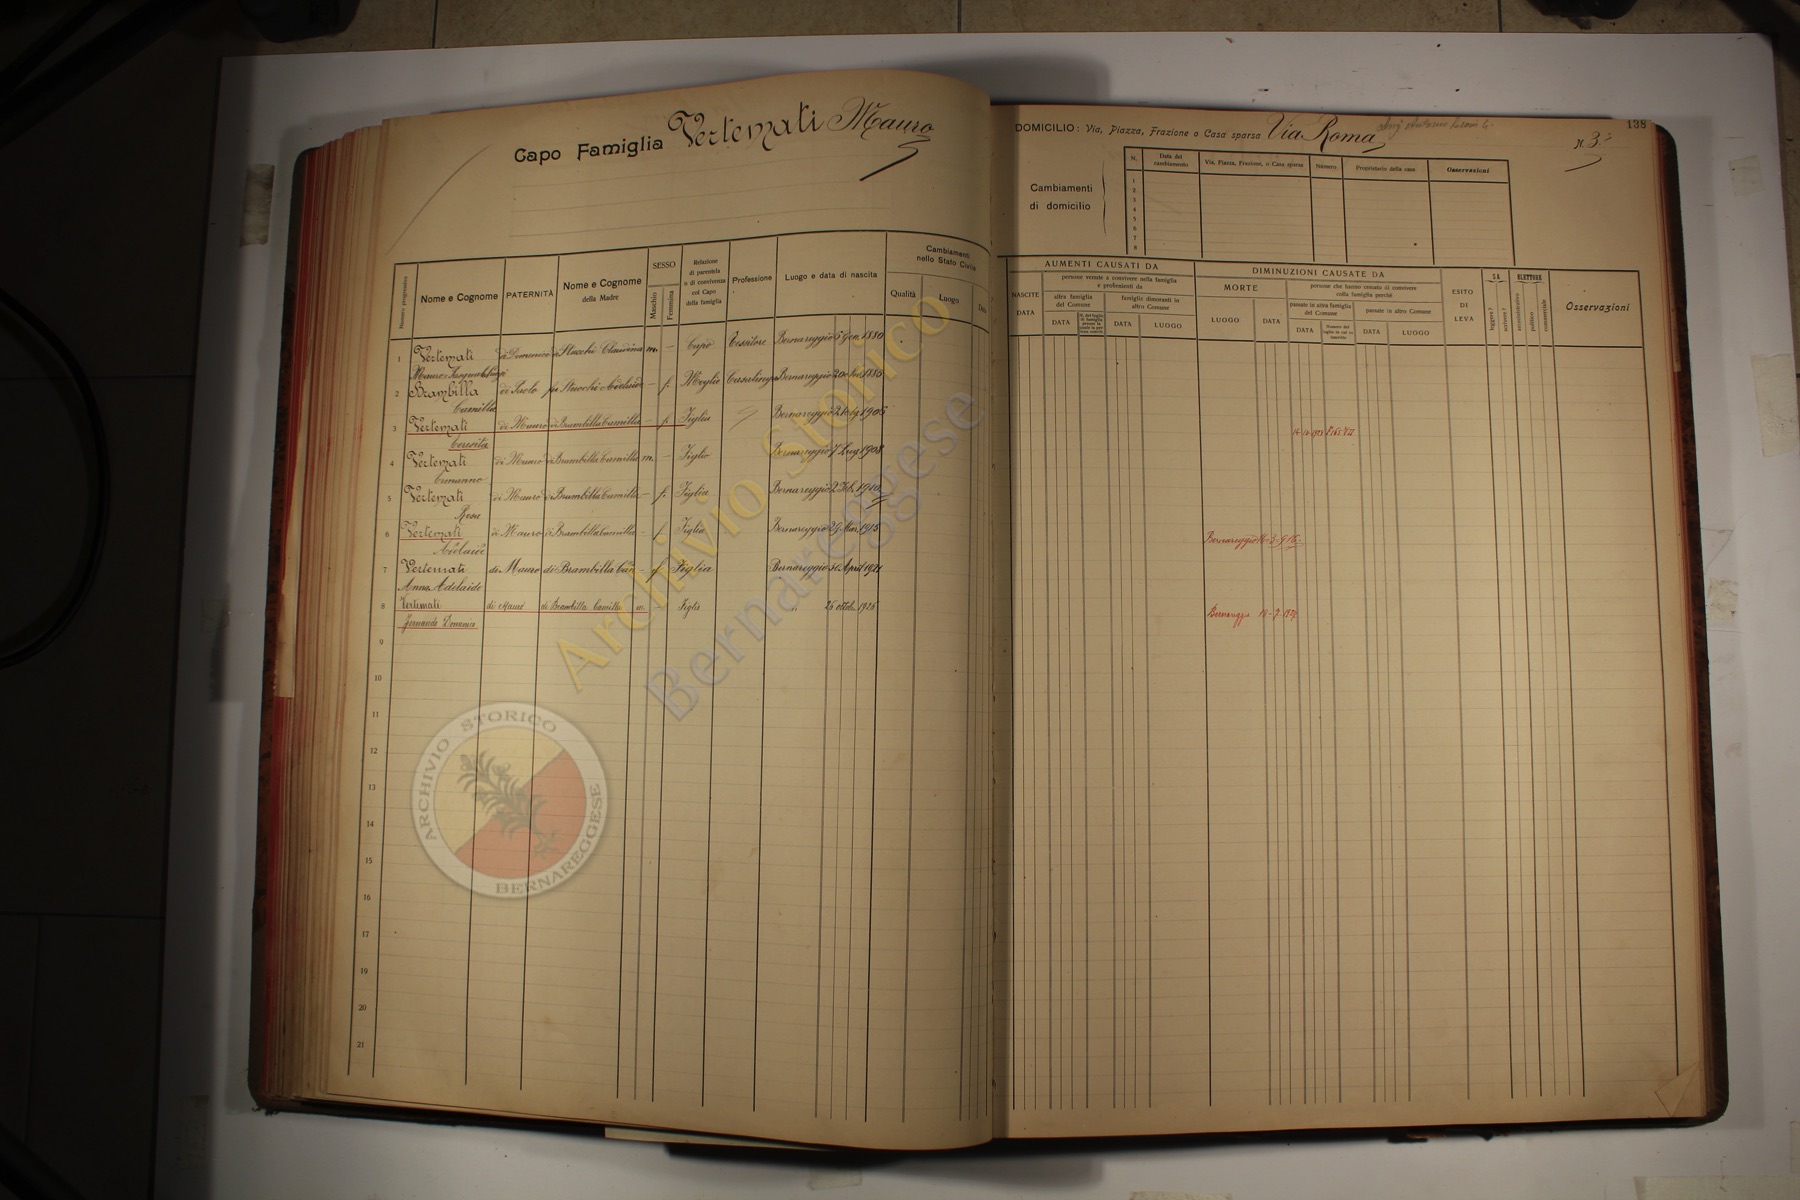 Capo Famiglia Vertemati Mauro
DOMICILIO: Via, Piazza, Frazione o Casa sparsa Via Roma
N 3
138
Cambiamenti di domicilio
N. Data del cambiamento Via, Piazza, Frazione, o Casa sparsa Numero Proprietario della casa Osservazioni
1
2
3
4
5
6
7
8
Numero progressivo
Nome e Cognome
PATERNITÀ
Nome e Cognome della Madre
SESSO
Maschio
Femmina
Relazione di parentela o di convivenza col Capo della famiglia
Professione
Luogo e data di nascita
Cambiamenti nello Stato Civile
Qualità
Luogo
Data
AUMENTI CAUSATI DA
NASCITE
DATA
persone venute a convivere nella famiglia e provenienti da
altra famiglia del Comune
DATA
famiglie dimoranti in altro Comune
DATA
LUOGO
DIMINUZIONI CAUSATE DA
MORTE
LUOGO
DATA
persone che hanno cessato di convivere colla famiglia perchè
passate in altra famiglia del Comune
DATA
passate in altro Comune
DATA
LUOGO
ESITO DI LEVA
SA
leggere?
scrivere?
ELETTORE
amministrativo
politico
commerciale
Osservazioni
1 Vertemati di Domenico di Stucchi Claudina m. – Capo Tessitore Bernareggio 6 Gen. 1880
Mauro Pasquale
2 Brambilla di Paolo fu Stucchi Adelaide – f. Moglie Casalinga Bernareggio 1885
Camilla
3 Vertemati di Mauro di Brambilla Camilla – f. Figlia Bernareggio 1905
Teresita
4 Vertemati di Mauro di Brambilla Camilla m. – Figlio Bernareggio 7 Lug. 1908
Ermanno
5 Vertemati di Mauro di Brambilla Camilla – f. Figlia Bernareggio 2 Feb. 1910
Rosa
6 Vertemati di Mauro di Brambilla Camilla – f. Figlia Bernareggio 29 Mar. 1915
Adelaide
Bernareggio 16-3-916
7 Vertemati di Mauro di Brambilla Cam – f Figlia Bernareggio 30 April 1921
Anna Adelaide
8 Vertemati di Mauro di Brambilla Camilla m. Figlio " 26 ottob. 1926
Fernando Domenico
Bernareggio
9
10
11
12
13
14
15
16
17
18
19
20
21
Archivio Storico
Bernareggese
ARCHIVIO STORICO
BERNAREGGESE